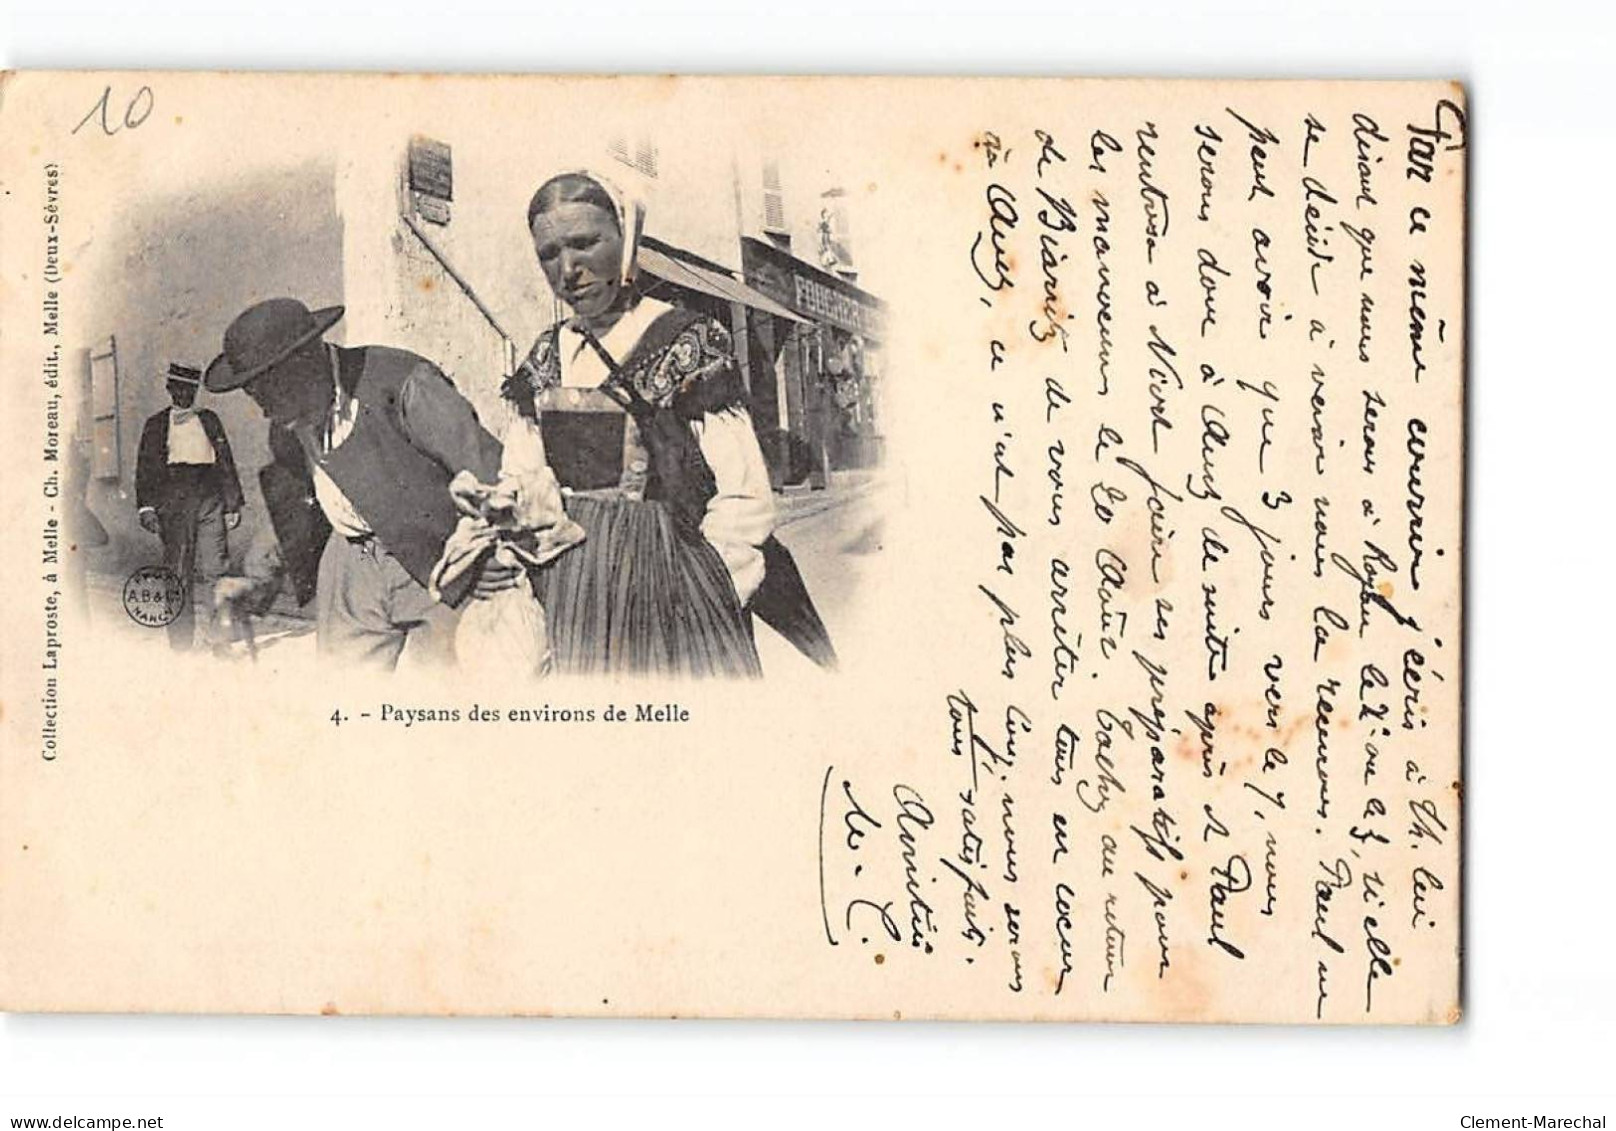 10
Collection Laproste, à Melle - Ch. Moreau, édit., Melle (Deux-Sèvres)
A.B & Cie
NANCY
4. - Paysans des environs de Melle
Par ce même courrier j'écris à Th. lui
disant que nous serons à Royan le 2 ou le 3, si elle
se décide à venir nous la recevrons. Paul ne
peut avoir que 3 jours vers le 7, nous
serons donc à Auch de suite après et Paul
rentrera à Niort faire ses préparatifs pour
les manoeuvres le 20 Août. Tachez au retour
de Biarritz de vous arrêter tous un
à Auch, ce n'est pas plus long, nous serons
tous satisfaits.
Amitiés
M. C.
Clement-Marechal
delcampe.net